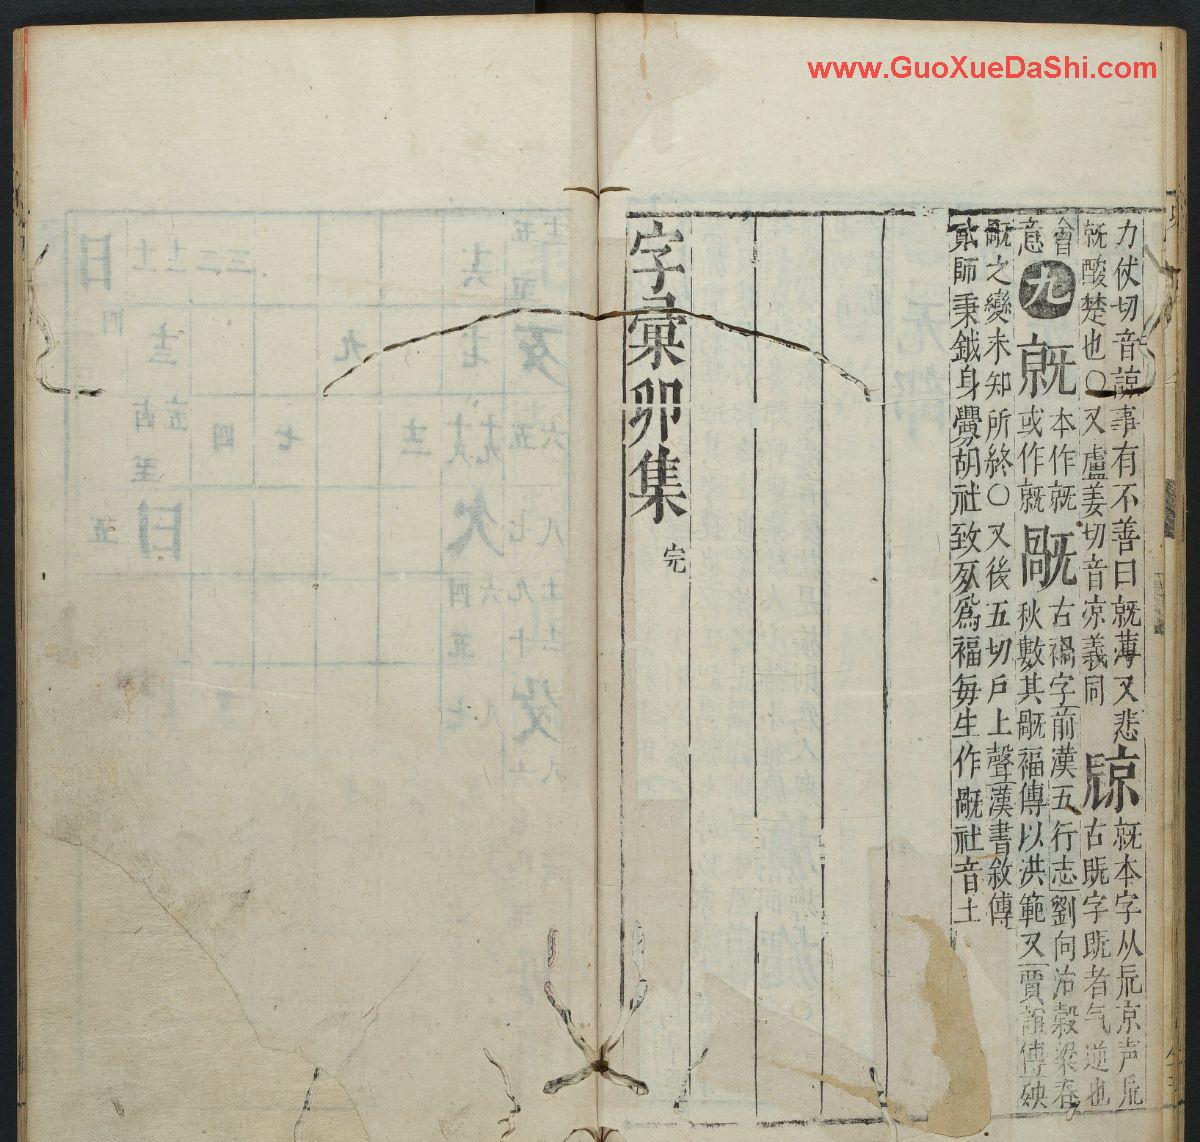 www.GuoXueDaShi.com
力仗切音諒事有不善曰㒫薄又悲
㒫酸楚也〇又盧姜切音凉義同
㒫本字从旡京声旡
古旣字旣者气逆也
會意
九
本作㒫
或作㒫
古禍字前漢五行志劉向治穀梁春
秋數其禍福傳以洪範又賈誼傳殃
之變未知所終〇又後五切戶上聲漢書敘傳
師秉鉞身釁胡社致死爲福每生作社音土
字彙卯集
完